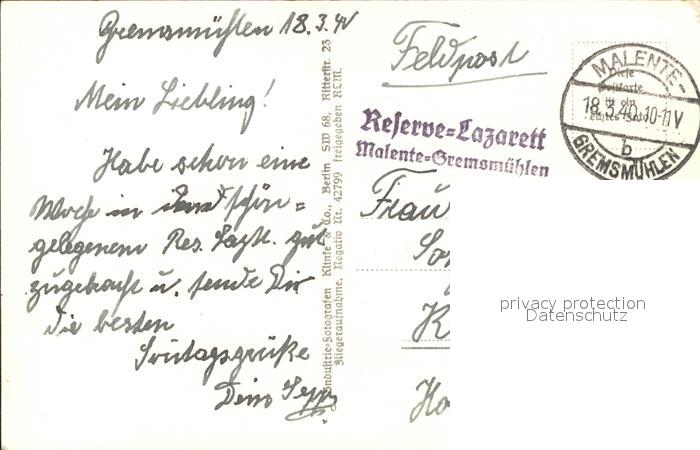 Gremsmühlen 18.3.40
Mein Liebling!
Habe schon eine
Woche in dem schön=
gelegenem Res. Laztt. gut
zugebracht u. sende Dir
die besten
Sonntagsgrüße
Dein Sepp
Industrie-Fotografen Klinke & Co., Berlin SW 68, Ritterstr. 23
Fliegeraufnahme, Negativ Nr. 42799 freigegeben RLM.
Feldpost
Reserve-Lazarett
Malente-Gremsmühlen
MALENTE-
18.3.40.10-11V
b
GREMSMÜHLEN
Diese
Postkarte
ist ein
echtes Foto
Frau
privacy protection
Datenschutz